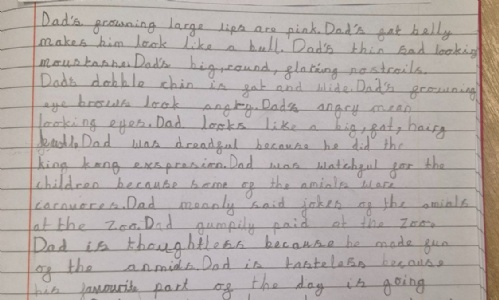 Dad's growning large lips are pink. Dad's fat belly
makes him look like a bull. Dad's thin sad looking
moustashe. Dad's big, round, glaring nostrails.
Dads dobble chin is fat and wide. Dad's growning
eye brows look angry. Dad's angry mean
looking eyes. Dad looks like a big, fat, hairy
bull. Dad was dreadful because he did the
king kong exspresion. Dad was watchful for the
children because some of the amials were
carnuores. Dad meanly said jokes of the amials
at the zoo. Dad gumpily paid at the zoo.
Dad is thoughtless because he made fun
of the anmials. Dad is tasteless because
his favourite part of the day is going